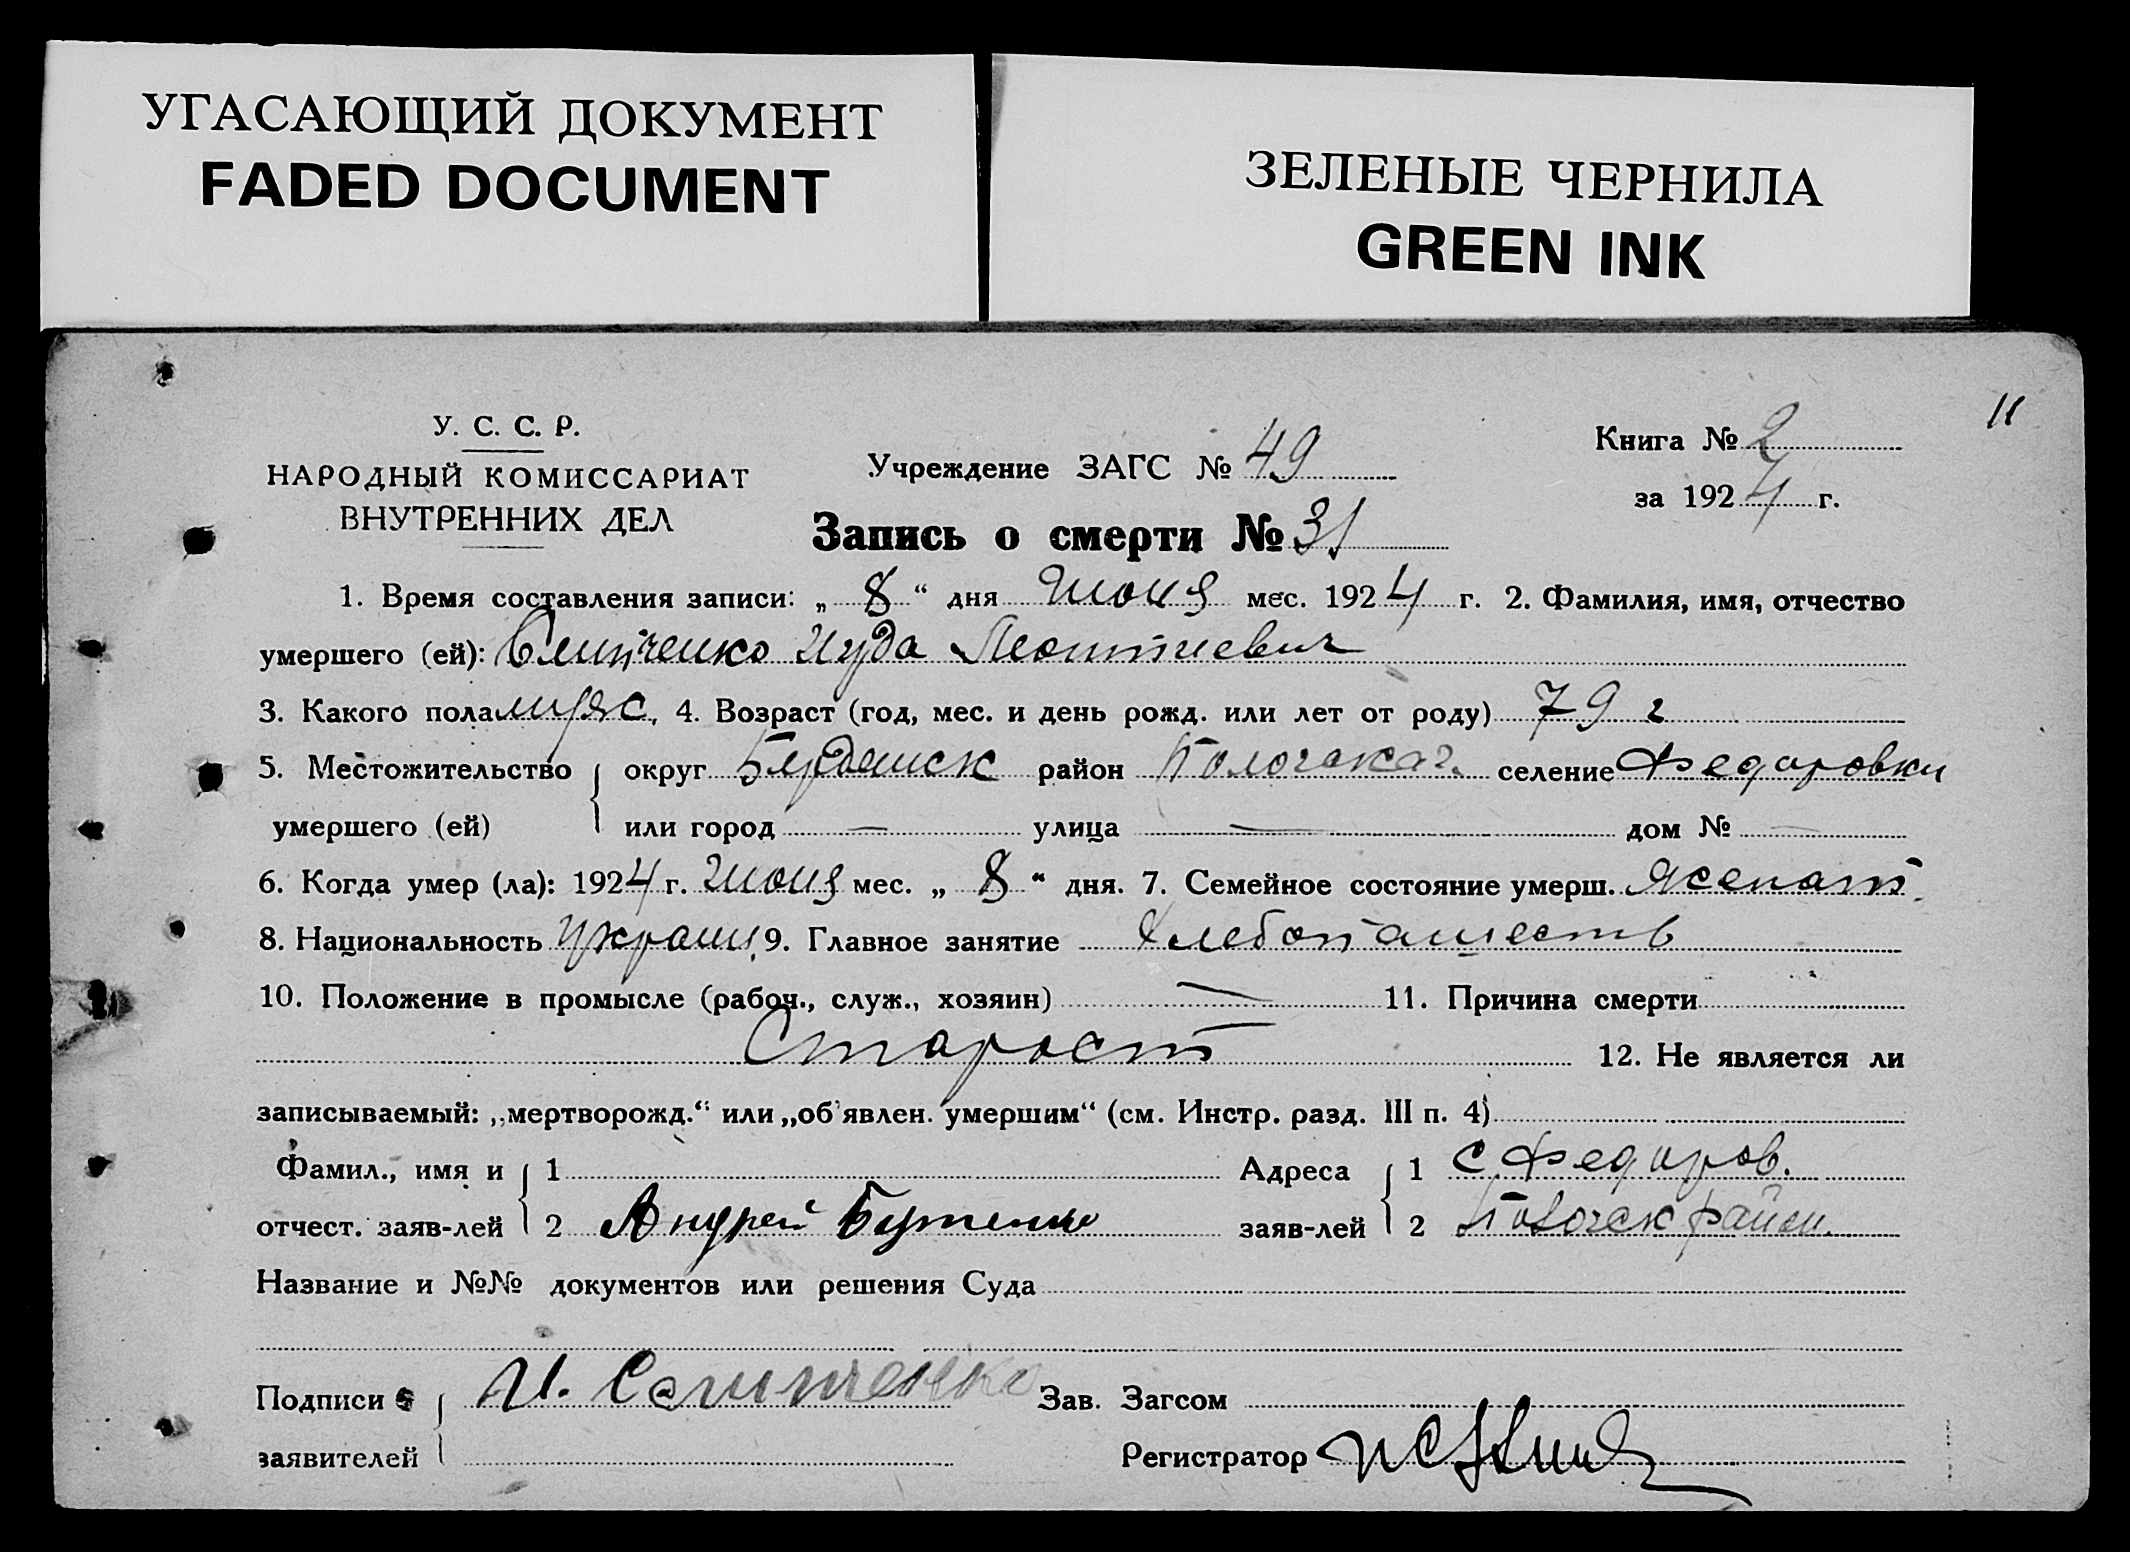 УГАСАЮЩИЙ ДОКУМЕНТ
FADED DOCUMENT
ЗЕЛЕНЫЕ ЧЕРНИЛА
GREEN INK
11
У. С. С. Р.
НАРОДНЫЙ КОМИССАРИАТ
ВНУТРЕННИХ ДЕЛ
Учреждение ЗАГС № 49
Книга № 2
за 1924 г.
Запись о смерти № 31
1. Время составления записи: „ 8 “ дня Июня мес. 1924 г. 2. Фамилия, имя, отчество
умершего (ей): Иуда Леонтиевич
3. Какого пола муж с, 4. Возраст (год, мес. и день рожд. или лет от роду) 79 г
5. Местожительство умершего (ей) { округ Бердянск район селение Федоровки
или город — улица — дом № —
6. Когда умер (ла): 1924 г. Июня мес. „ 8 “ дня. 7. Семейное состояние умерш.
8. Национальность Украин 9. Главное занятие Хлебопашеств
10. Положение в промысле (рабоч., служ., хозяин) — 11. Причина смерти
Старост 12. Не является ли
записываемый: „мертворожд.“ или „об'явлен. умершим“ (см. Инстр. разд. III п. 4)
Фамил., имя и отчест. заяв-лей { 1 Адреса заяв-лей { 1 С. Федоров.
2 Андрей 2 район.
Название и №№ документов или решения Суда
Подписи заявителей { И. Зав. Загсом
Регистратор